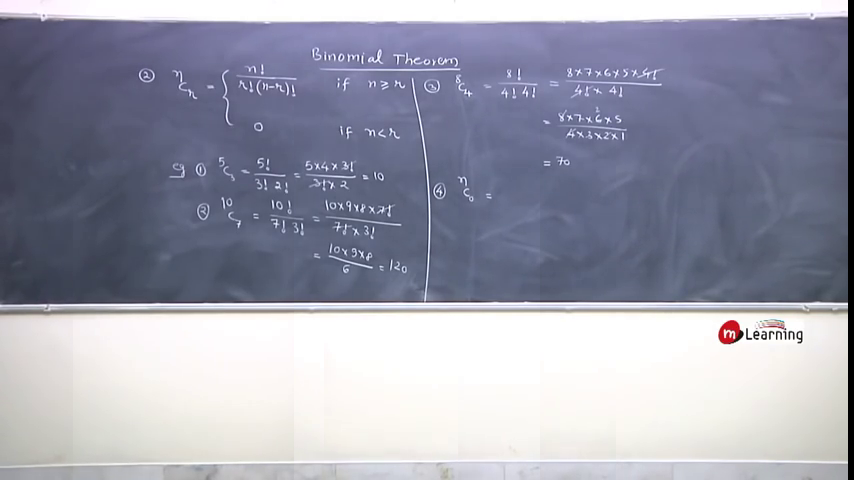 Binomial Theorem
② ⁿCᵣ = { n! / r!(n-r)! if n ≥ r
0 if n < r
eg ① ⁵C₃ = 5! / 3! 2! = 5×4×3! / 3!×2 = 10
② ¹⁰C₇ = 10! / 7! 3! = 10×9×8×7! / 7!×3!
= 10×9×8 / 6 = 120
③ ⁸C₄ = 8! / 4! 4! = 8×7×6×5×4! / 4!×4!
= 8×7×6×5 / 4×3×2×1
2
= 70
④ ⁿC₀ =
m Learning